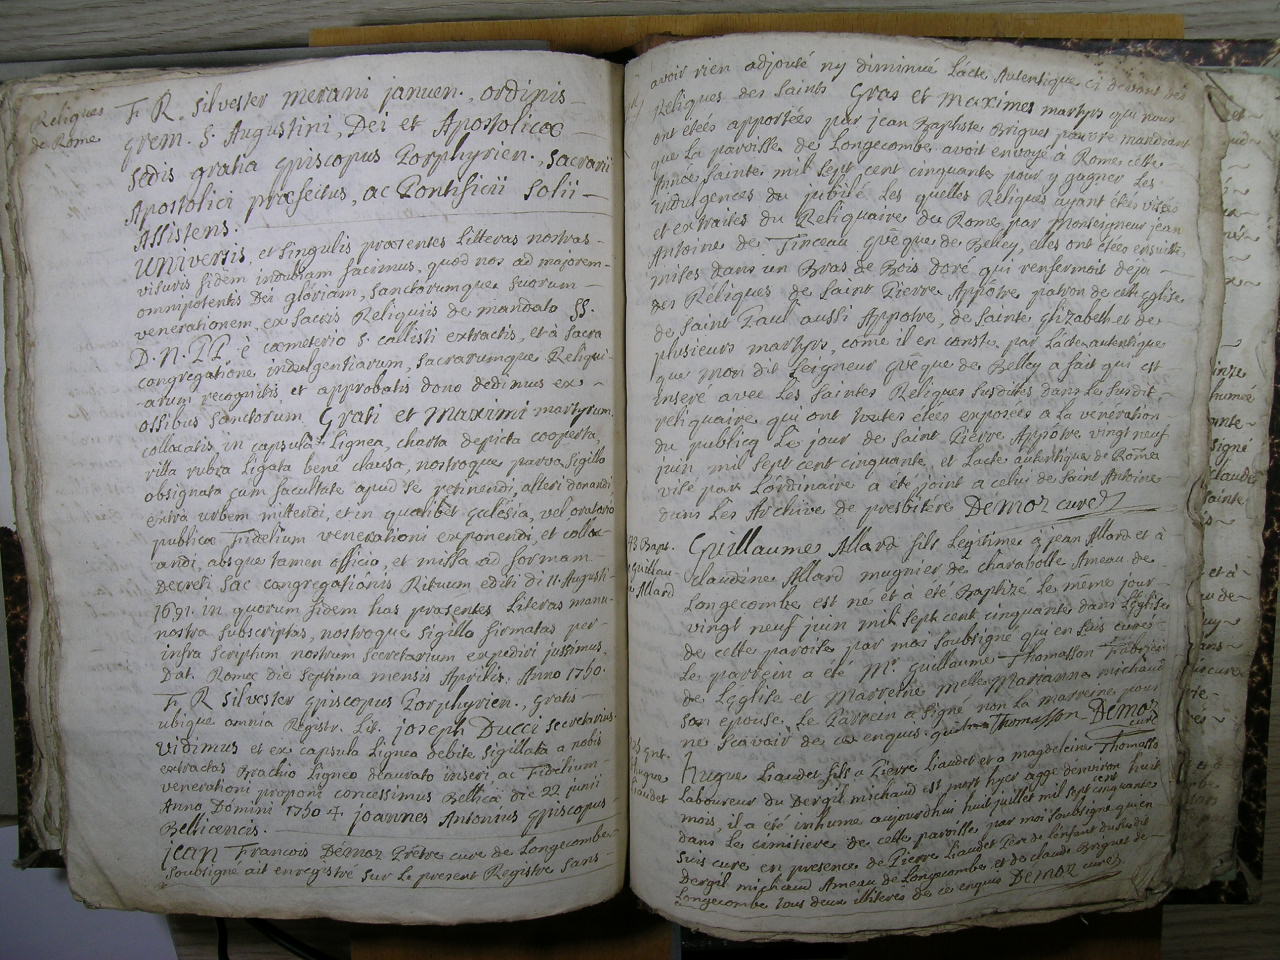 Reliques
de Rome
F. R. Silvester merani januen., ordinis
grem. S. Augustini, Dei et Apostolicæ
sedis gratia Episcopus Porphyrien., sacrarii
Apostolici præfectus, ac Pontificii Solii
Assistens.
Universis, et singulis præsentes litteras nostras
visuris fidem indubiam facimus, quod nos ad majorem
omnipotentis Dei gloriam, sanctorumque suorum
venerationem, ex sacris Reliquiis de mandato SS.
D. N. PP. è cœmeterio S. callisti extractis, et à sacra
congregatione indulgentiarum, sacrarumque Reliqui-
arum recognitis et approbatis dono dedimus ex
ossibus sanctorum Grati et Maximi martyrum
collocatis in capsula Lignea, charta depicta cooperta,
vitta rubra Ligata bene clausa, nostroque parvo sigillo
obsignata cum facultate apud se retinendi, alteri donandi
extra urbem mittendi, et in qualibet Ecclesia, vel oratorio
publicæ Fidelium venerationi exponendi, et collo-
andi, absque tamen officio, et missa ad formam
Decreti sac congregationis Rituum editi di 11. Augusti
1691. in quorum fidem has præsentes Literas manu
nostra subscriptas, nostroque sigillo firmatas per
infra scriptum nostrum secretarium expediri jussimus.
Dat. Romæ die septima mensis Aprilis: Anno 1750.
F. R Silvester Episcopus Porphyrien., gratis
ubique omnia Registr. Lib. joseph Ducci secretarius.
vidimus et ex capsula Lignea debite sigillata a nobis
extractas Brachio Ligneo deaurato inseri, ac Fidelium
venerationi proponi concessimus Bellicii die 22 junii
Anno Domini 1750 + joannes Antonius Episcopus
Bellicencis.
jean Francois Démoz Prêtre curé de Longecombe
soubsigné ait enregistré sur Le present Registre sans
avoir rien adjouté ny diminué L'acte Autentique ci devant des
Reliques des Saints Gras et maximes martyrs qui nous
ont étées apportées par jean Baptiste Briguet pauvre mandiant
que La paroisse de Longecombe avoit envoyé à Rome cette
Année sainte mil sept cent cinquante pour y gagner Les
indulgences du jubilé. Les quelles Reliques ayant étés visées
et extraites du Reliquaire de Rome par Monseigneur jean
Antoine de Tinceau Evêque de Belley, elles ont étées ensuitte
mises dans un Bras de Bois doré qui renfermoit deja
des Reliques de Saint Pierre Appôtre patron de cette Eglise
de Saint Paul aussi Appotre, de Sainte Elizabeth et de
plusieurs martyrs, come il en conste par L'acte autentique
que Mon dit Seigneur Evêque de Belley a fait qui est
inseré avec Les Saintes Reliques susdites dans Le susdit
reliquaire, qui ont toutes étées exposées a La veneration
du publicq Le jour de Saint Pierre Appôtre vingt neuf
juin mil sept cent cinquante et L'acte autentique de Rome
visé par L'ordinaire a été joint a celui de Saint Antoine
dans Les Archive de presbitère Démoz curé
43 Bapt.
Guillau-
e Allard
Guillaume Allard fils Legitime à jean Allard et à
claudine Allard mugnier de charabotte Ameau de
Longecombe est né et à été Baptizé Le même jour
vingt neuf juin mil sept cent cinquante dans L'Eglise
de cette paroise par moi soubsigné qui en suis curé
Le parrein a été Mr. Guillaume Thomasson
de L'Eglise et Marreine Melle Marianne michaud
son epouse. Le Parrein a signé non La marreine pour
ne sçavoir de ce enquis. Thomasson Démoz
curé
Hugue
Liaudet
hugue Liaudet fils a Pierre Liaudet et a magdeleine Thomasso
Laboureur du Dergil michaud est mort hyer agge d'environ huit
mois, il a été inhumé aujourdhui huit juillet mil sept cent cinquante
dans Le cimitiere de cette paroisse par moi soubsigné qui en
suis curé en presence de Pierre Liaudet Père de L'enfant du susdit
Dergil michaud Ameau de Longecombe et de claude Briguet de
Longecombe tous deux illiterés de ce enquis Démoz curé